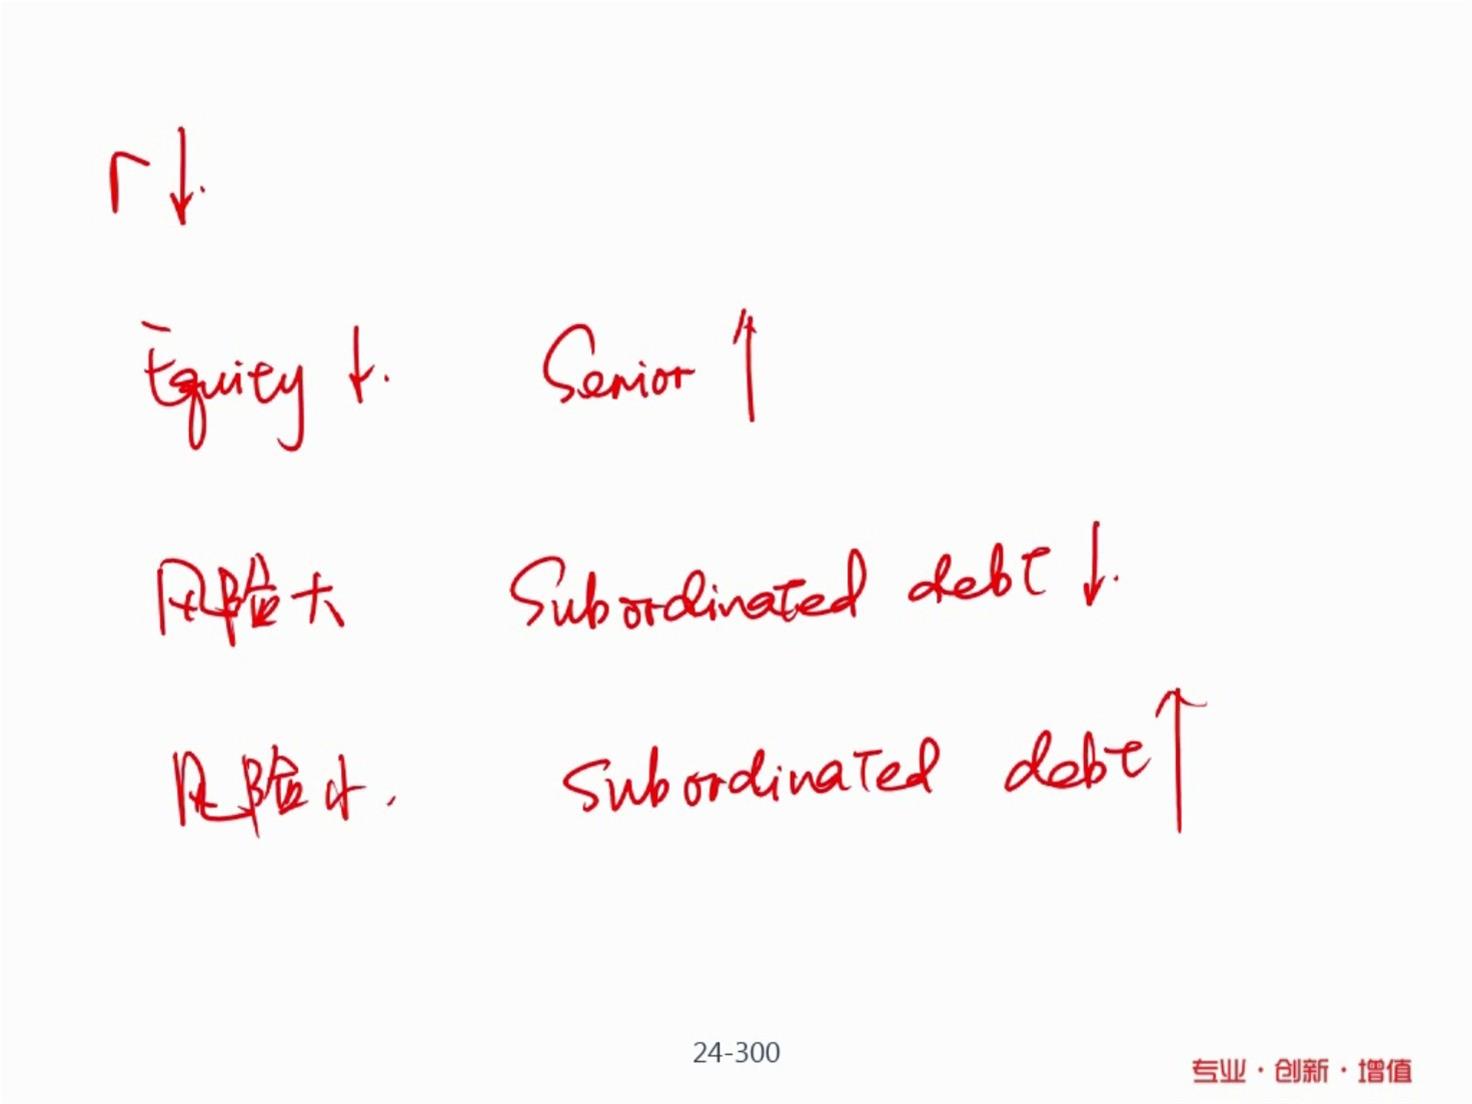 r ↓.
Equity ↓. Senior ↑
风险大 Subordinated debt ↓.
风险小. Subordinated debt ↑
24-300
专业·创新·增值